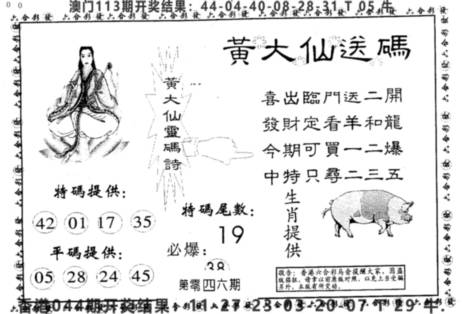 澳门113期开奖结果：44-04-40-08-28-31 T 05 牛
黃大仙送碼
黃大仙靈碼詩
喜出臨門送二開
發財定看羊和龍
今期可買一二爆
中特只尋二三五
特碼提供：
42 01 17 35
平碼提供：
05 28 24 45
特碼尾數：
19
必爆：
38
第零四六期
生肖提供
香港044期开奖结果：11-27-23-03-20-07 T 29 牛